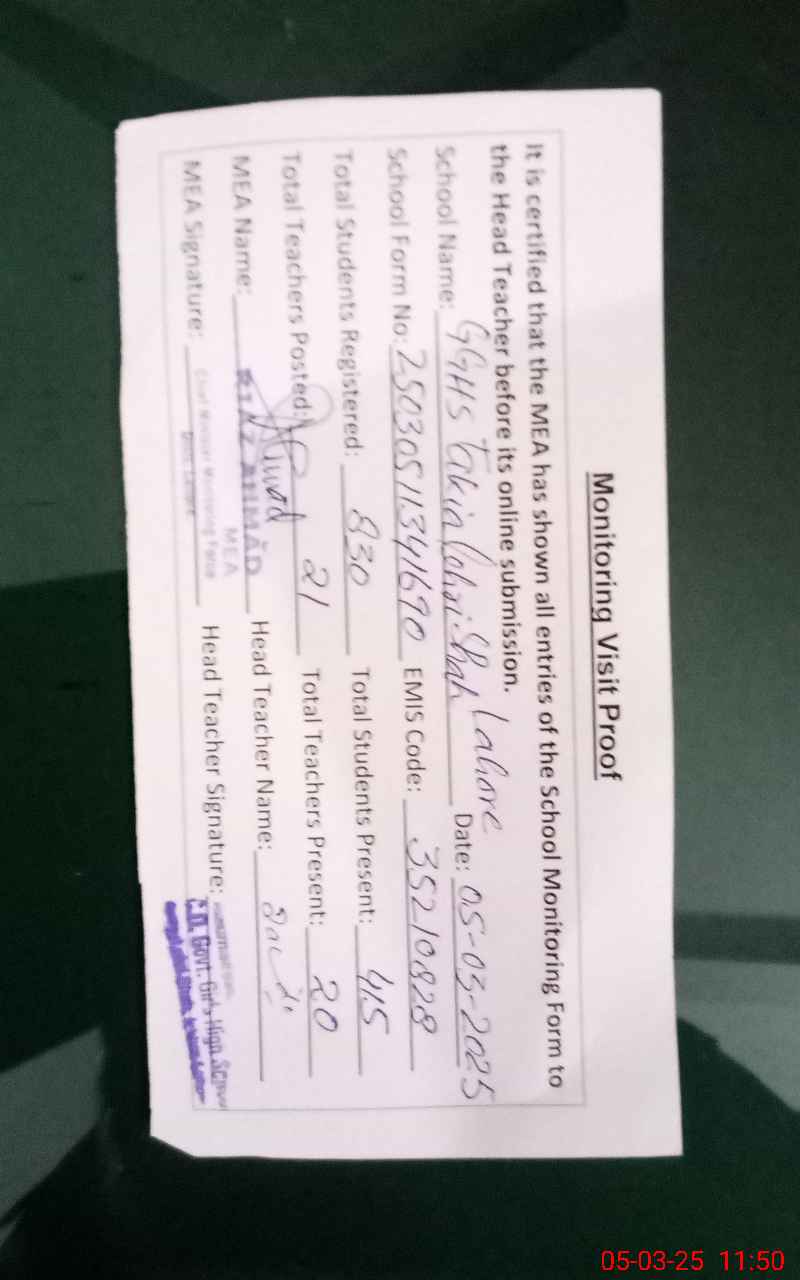 Monitoring Visit Proof
It is certified that the MEA has shown all entries of the School Monitoring Form to
the Head Teacher before its online submission.
School Name: GGHS Takia Lehri Shah Lahore Date: 05-03-2025
School Form No: 25030511341690 EMIS Code: 35210828
Total Students Registered: 830 Total Students Present: 415
Total Teachers Posted: 21 Total Teachers Present: 20
MEA Name: RIAZ AHMAD Head Teacher Name:
MEA
MEA Signature: Head Teacher Signature:
Chief Minister Monitoring Force
Govt. Girls High School
05-03-25 11:50